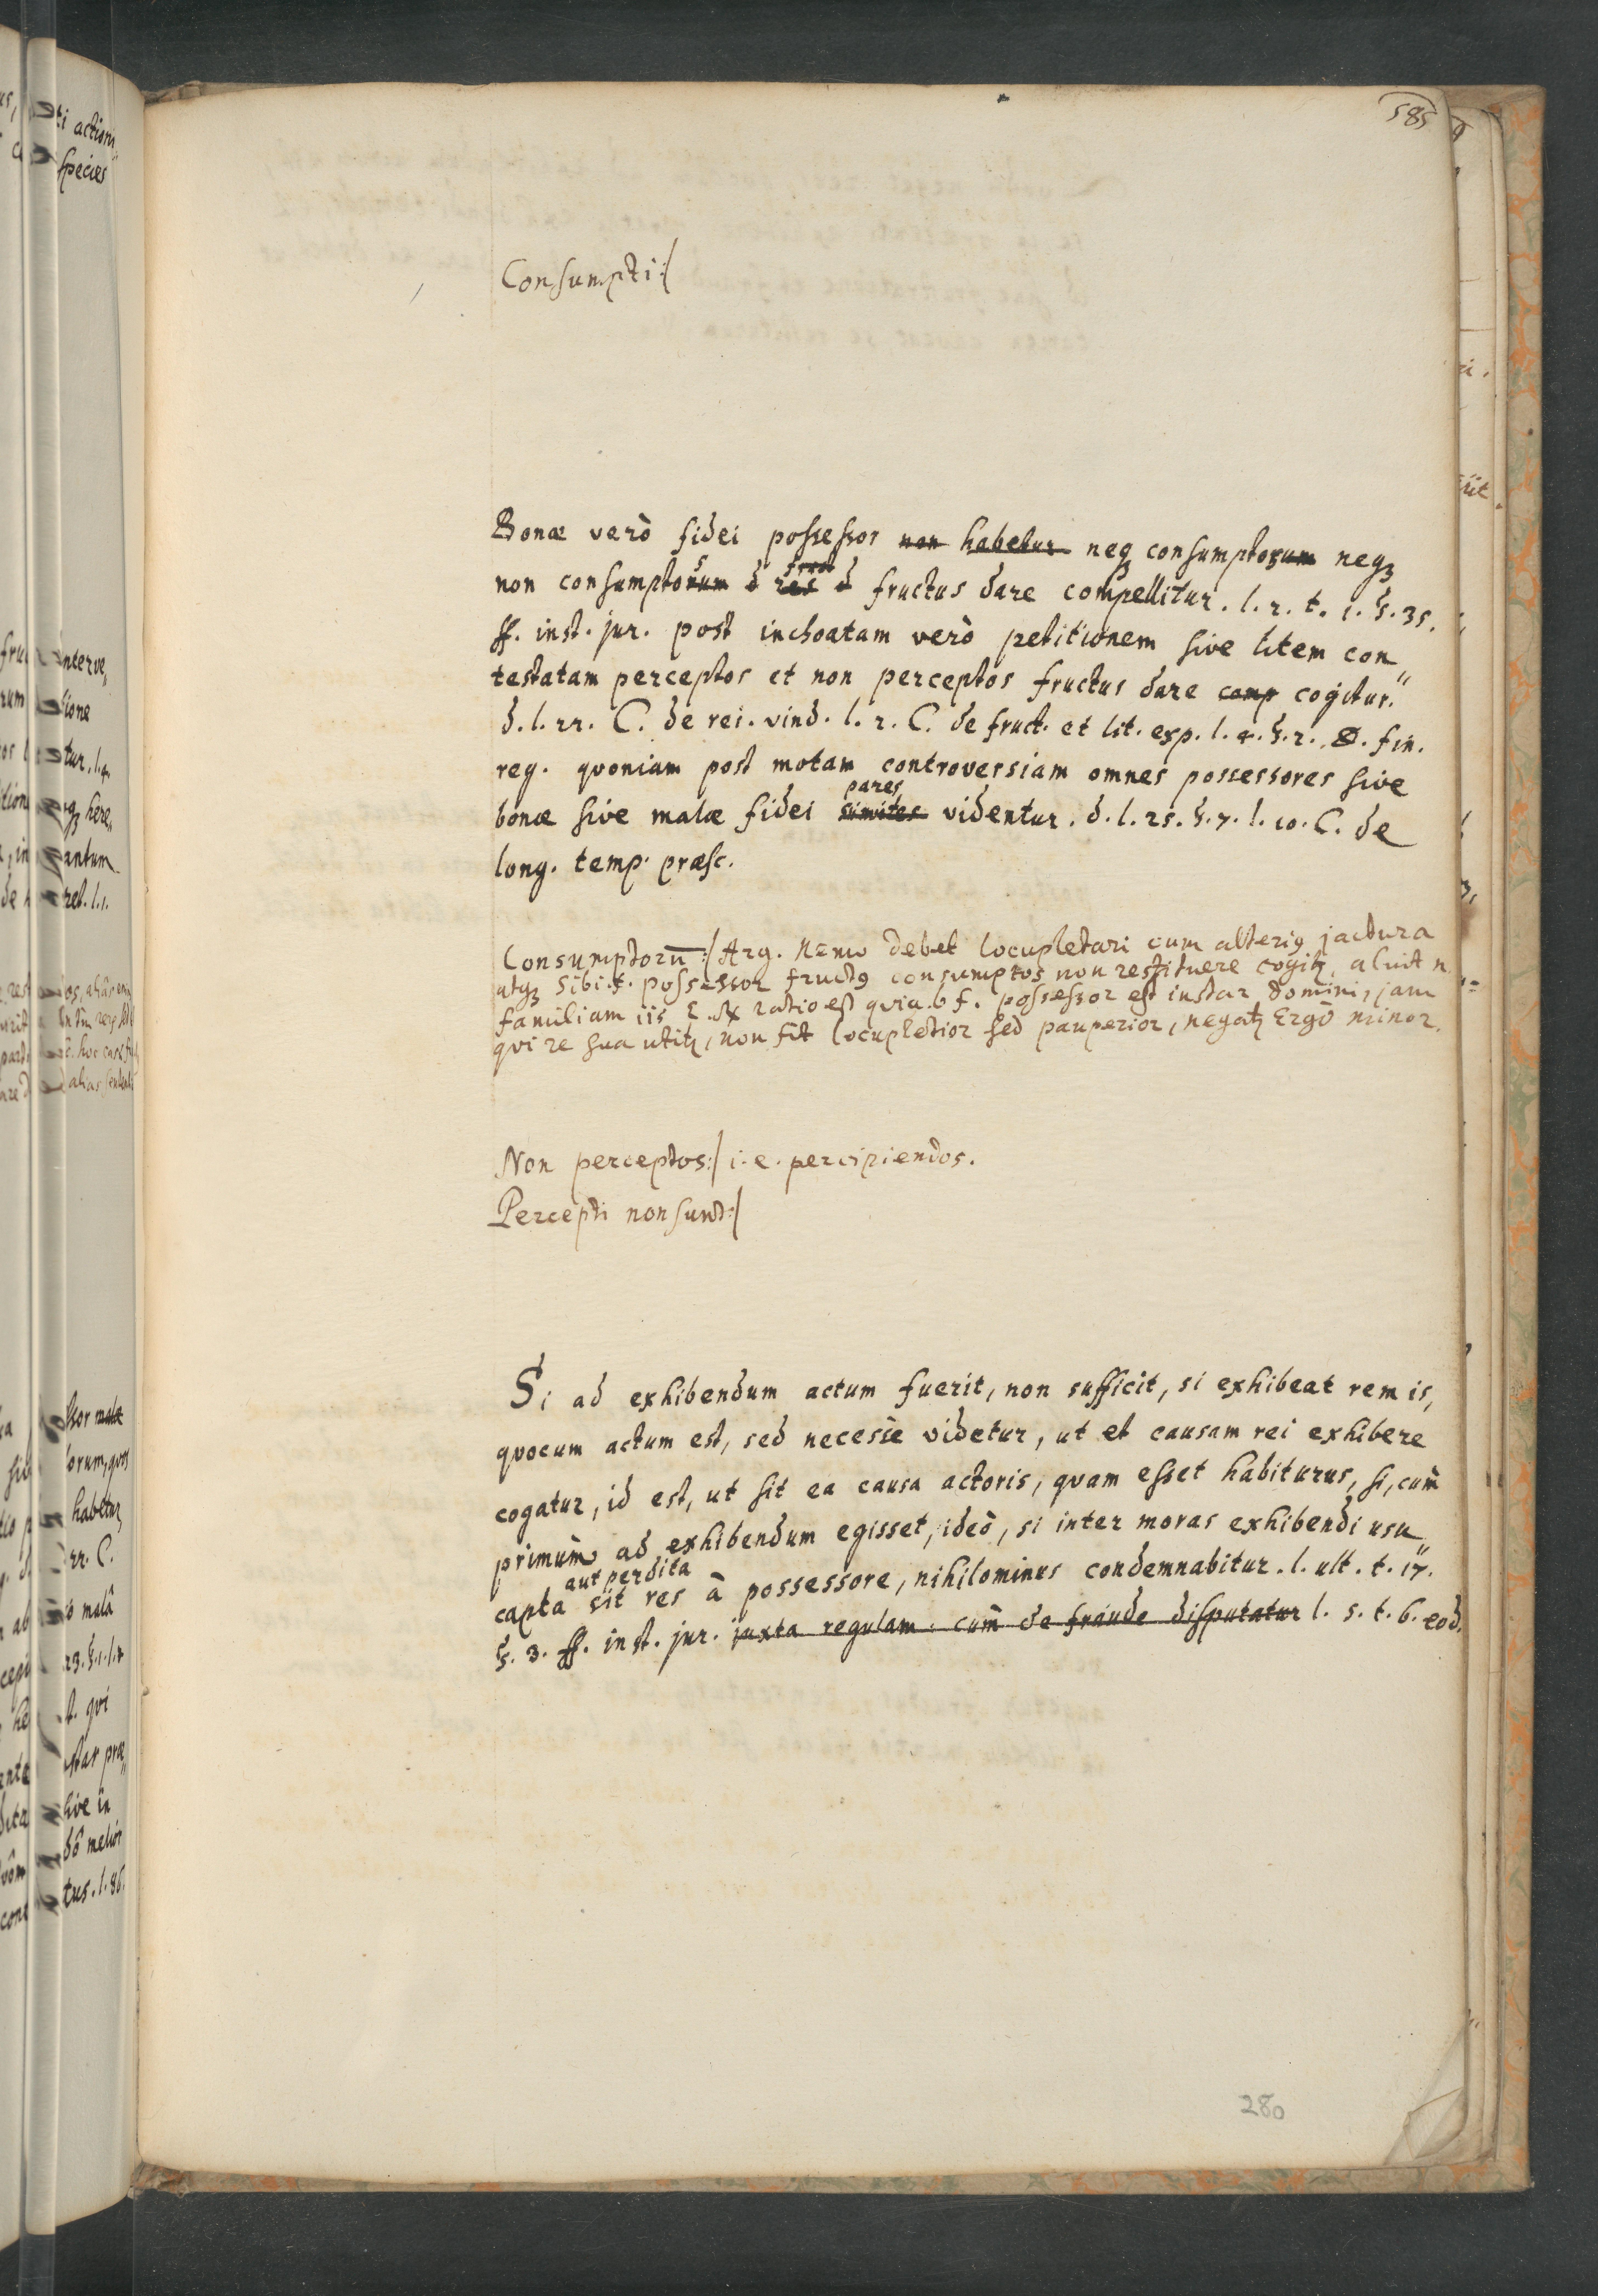 585
Consumpti:/
Bonæ verò fidei possessor non habetur neqꝫ consumptorum neqꝫ
non consumptorum d res d fructus dare compellitur. l. 2. t. 1. §. 35.
ff. inst. jur. post inchoatam verò petitionem sive litem con„
testatam perceptos et non perceptos fructus dare comp cogitur.
d. l. 22. C. de rei. vind. l. 2. C. de fruct. et lit. exp. l. 4. §. 2. ff. fin.
reg. quoniam post motam controversiam omnes possessores sive
pares
bonæ sive malæ fidei similes videntur. d. l. 25. §. 7. l. 10. C. de
long. temp. præsc.
Consumptorū:/ Arg. Nemo debet locupletari cum alteriꝰ jactura
atqꝫ sibi f. possessor fructꝰ consumptos non restituere cogitꝛ, aluit n.
familiam iis E. Rx ratio est quia b f. possessor est instar domini, jam
qui re sua utitꝛ, non fit locupletior sed pauperior, negatꝛ Ergò minor.
Non perceptos:/ i. e. percipiendos.
Percepti non sunt:/
Si ad exhibendum actum fuerit, non sufficit, si exhibeat rem is,
quocum actum est, sed necesse videtur, ut et causam rei exhibere
cogatur, id est, ut sit ea causa actoris, quam esset habiturus, si, cum̀
primum̀ ad exhibendum egisset, ideò, si inter moras exhibendi usu„
aut perdita
capta sit res à possessore, nihilominus condemnabitur. l. ult. t. 17.
§. 3. ff. inst. jur. juxta regulam. cum̀ de fraude disputatur l. 5. t. 6. eod.
280